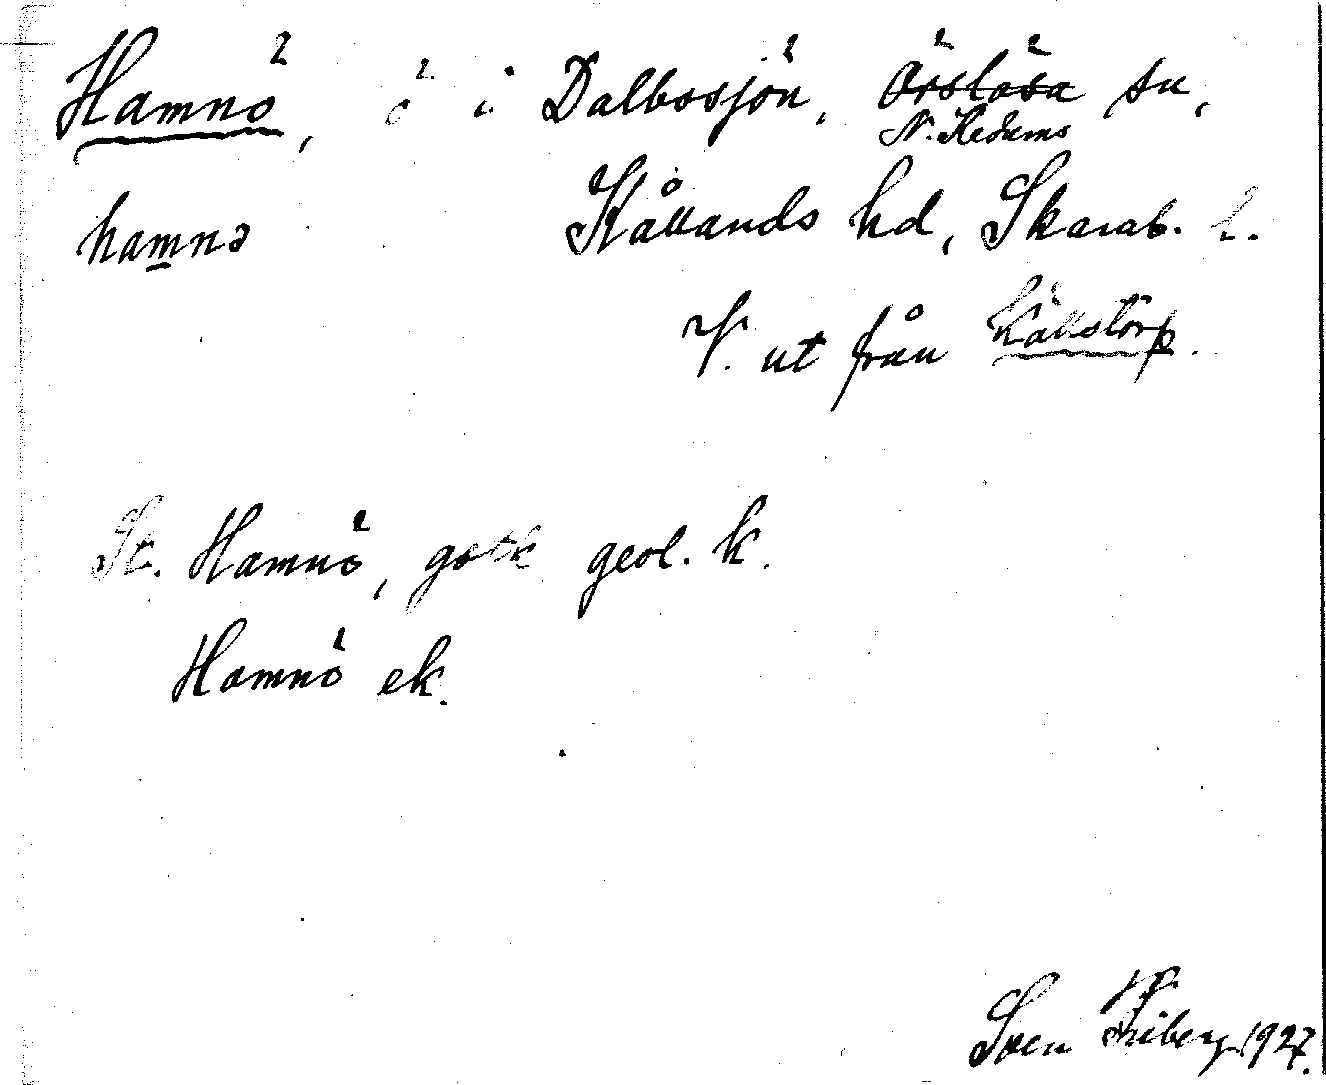 Hamnö, ö i Dalbosjön, Örslösa sn,
N. Kedums
hamnə Kållands hd, Skarab. l.
V. ut från Källstorp.
St. Hamnö, geol. k.
Hamnö ek.
Sven Friberg 1927.